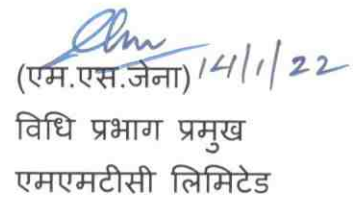 (एम.एस.जेना) 14/1/22
विधि प्रभाग प्रमुख
एमएमटीसी लिमिटेड